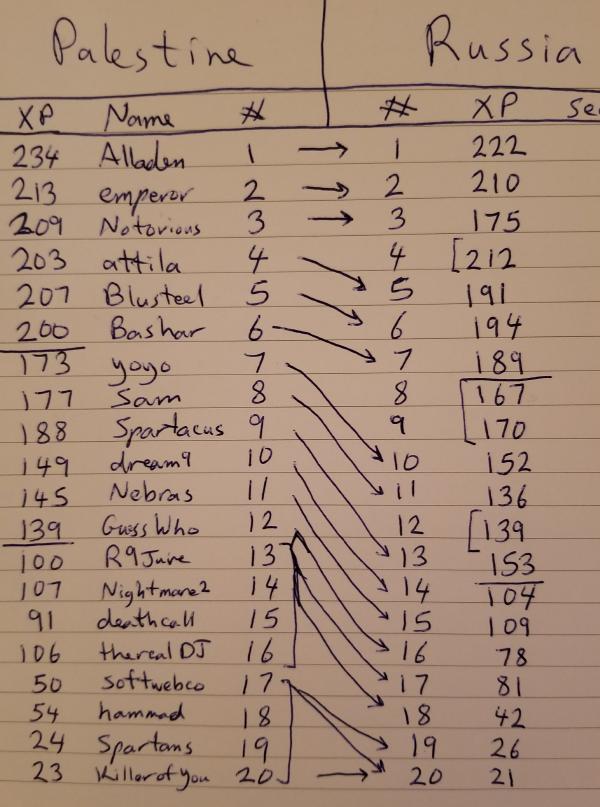 Palestine Russia
XP Name # # XP Sec
234 Alladen 1 → 1 222
213 emperor 2 → 2 210
209 Notorious 3 → 3 175
203 attila 4 4 [212
207 Blusteel 5 5 191
200 Bashar 6 6 194
173 yoyo 7 7 189
177 Sam 8 8 167
188 Spartacus 9 9 170
149 dream9 10 10 152
145 Nebras 11 11 136
139 GuessWho 12 12 [139
100 R9June 13 13 153
107 Nightmare2 14 14 104
91 deathcall 15 15 109
106 thereal DJ 16 16 78
50 softwebco 17 17 81
54 hammad 18 18 42
24 Spartans 19 19 26
23 Killerofyou 20 → 20 21